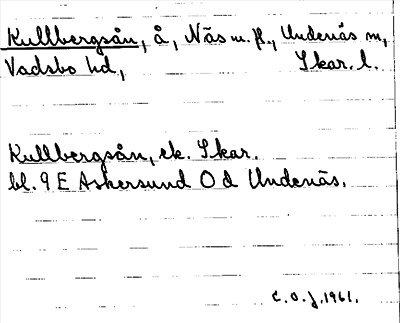 Kullbergsån, å, Näs m. fl., Undenäs sn,
Vadsbo hd, Skar. l.
Kullbergsån, ek. Skar.
bl. 9 E Askersund O d Undenäs.
C. O. J. 1961.